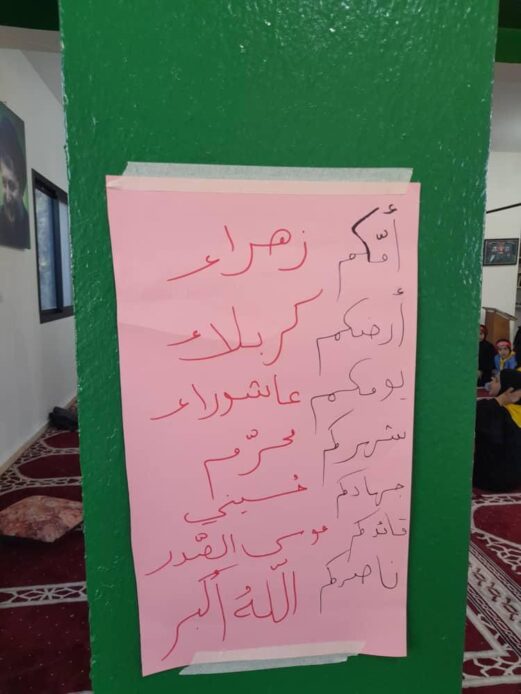 أُمّكم زهراء
أرضكم كربلاء
يومكم عاشوراء
شهركم محرّم
جهادكم حُسيني
قائدكم موسى الصّدر
ناصركم اللّهُ أكبر